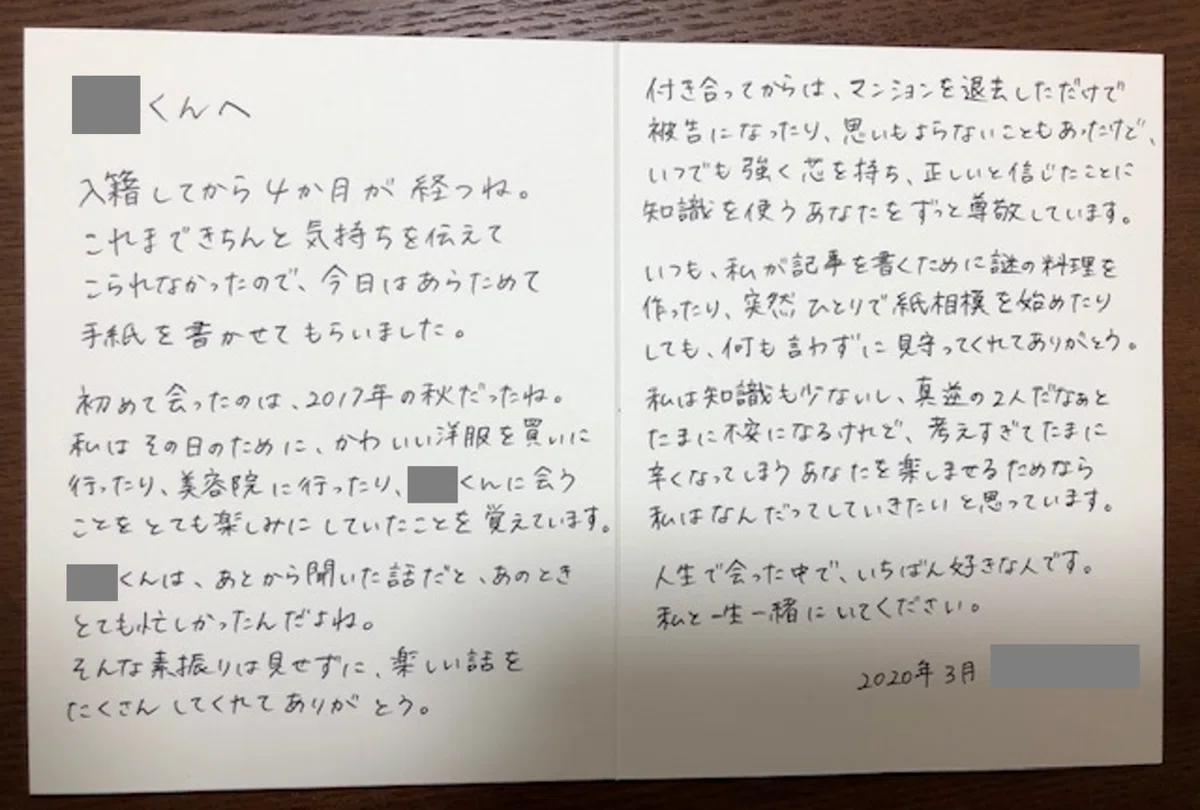 くんへ
入籍してから4か月が経つね。
これまできちんと気持ちを伝えて
こられなかったので、今日はあらためて
手紙を書かせてもらいました。
初めて会ったのは、2017年の秋だったね。
私はその日のために、かわいい洋服を買いに
行ったり、美容院に行ったり、くんに会う
ことをとても楽しみにしていたことを覚えています。
くんは、あとから聞いた話だと、あのとき
とても忙しかったんだよね。
そんな素振りは見せずに、楽しい話を
たくさんしてくれてありがとう。
付き合ってからは、マンションを退去しただけで
被告になったり、思いもよらないこともあったけど、
いつでも強く芯を持ち、正しいと信じたことに
知識を使うあなたをずっと尊敬しています。
いつも、私が記事を書くために謎の料理を
作ったり、突然ひとりで紙相模を始めたり
しても、何も言わずに見守ってくれてありがとう。
私は知識も少ないし、真逆の2人だなぁと
たまに不安になるけれど、考えすぎてたまに
辛くなってしまうあなたを楽しませるためなら
私はなんだってしていきたいと思っています。
人生で会った中で、いちばん好きな人です。
私と一生一緒にいてください。
2020年3月